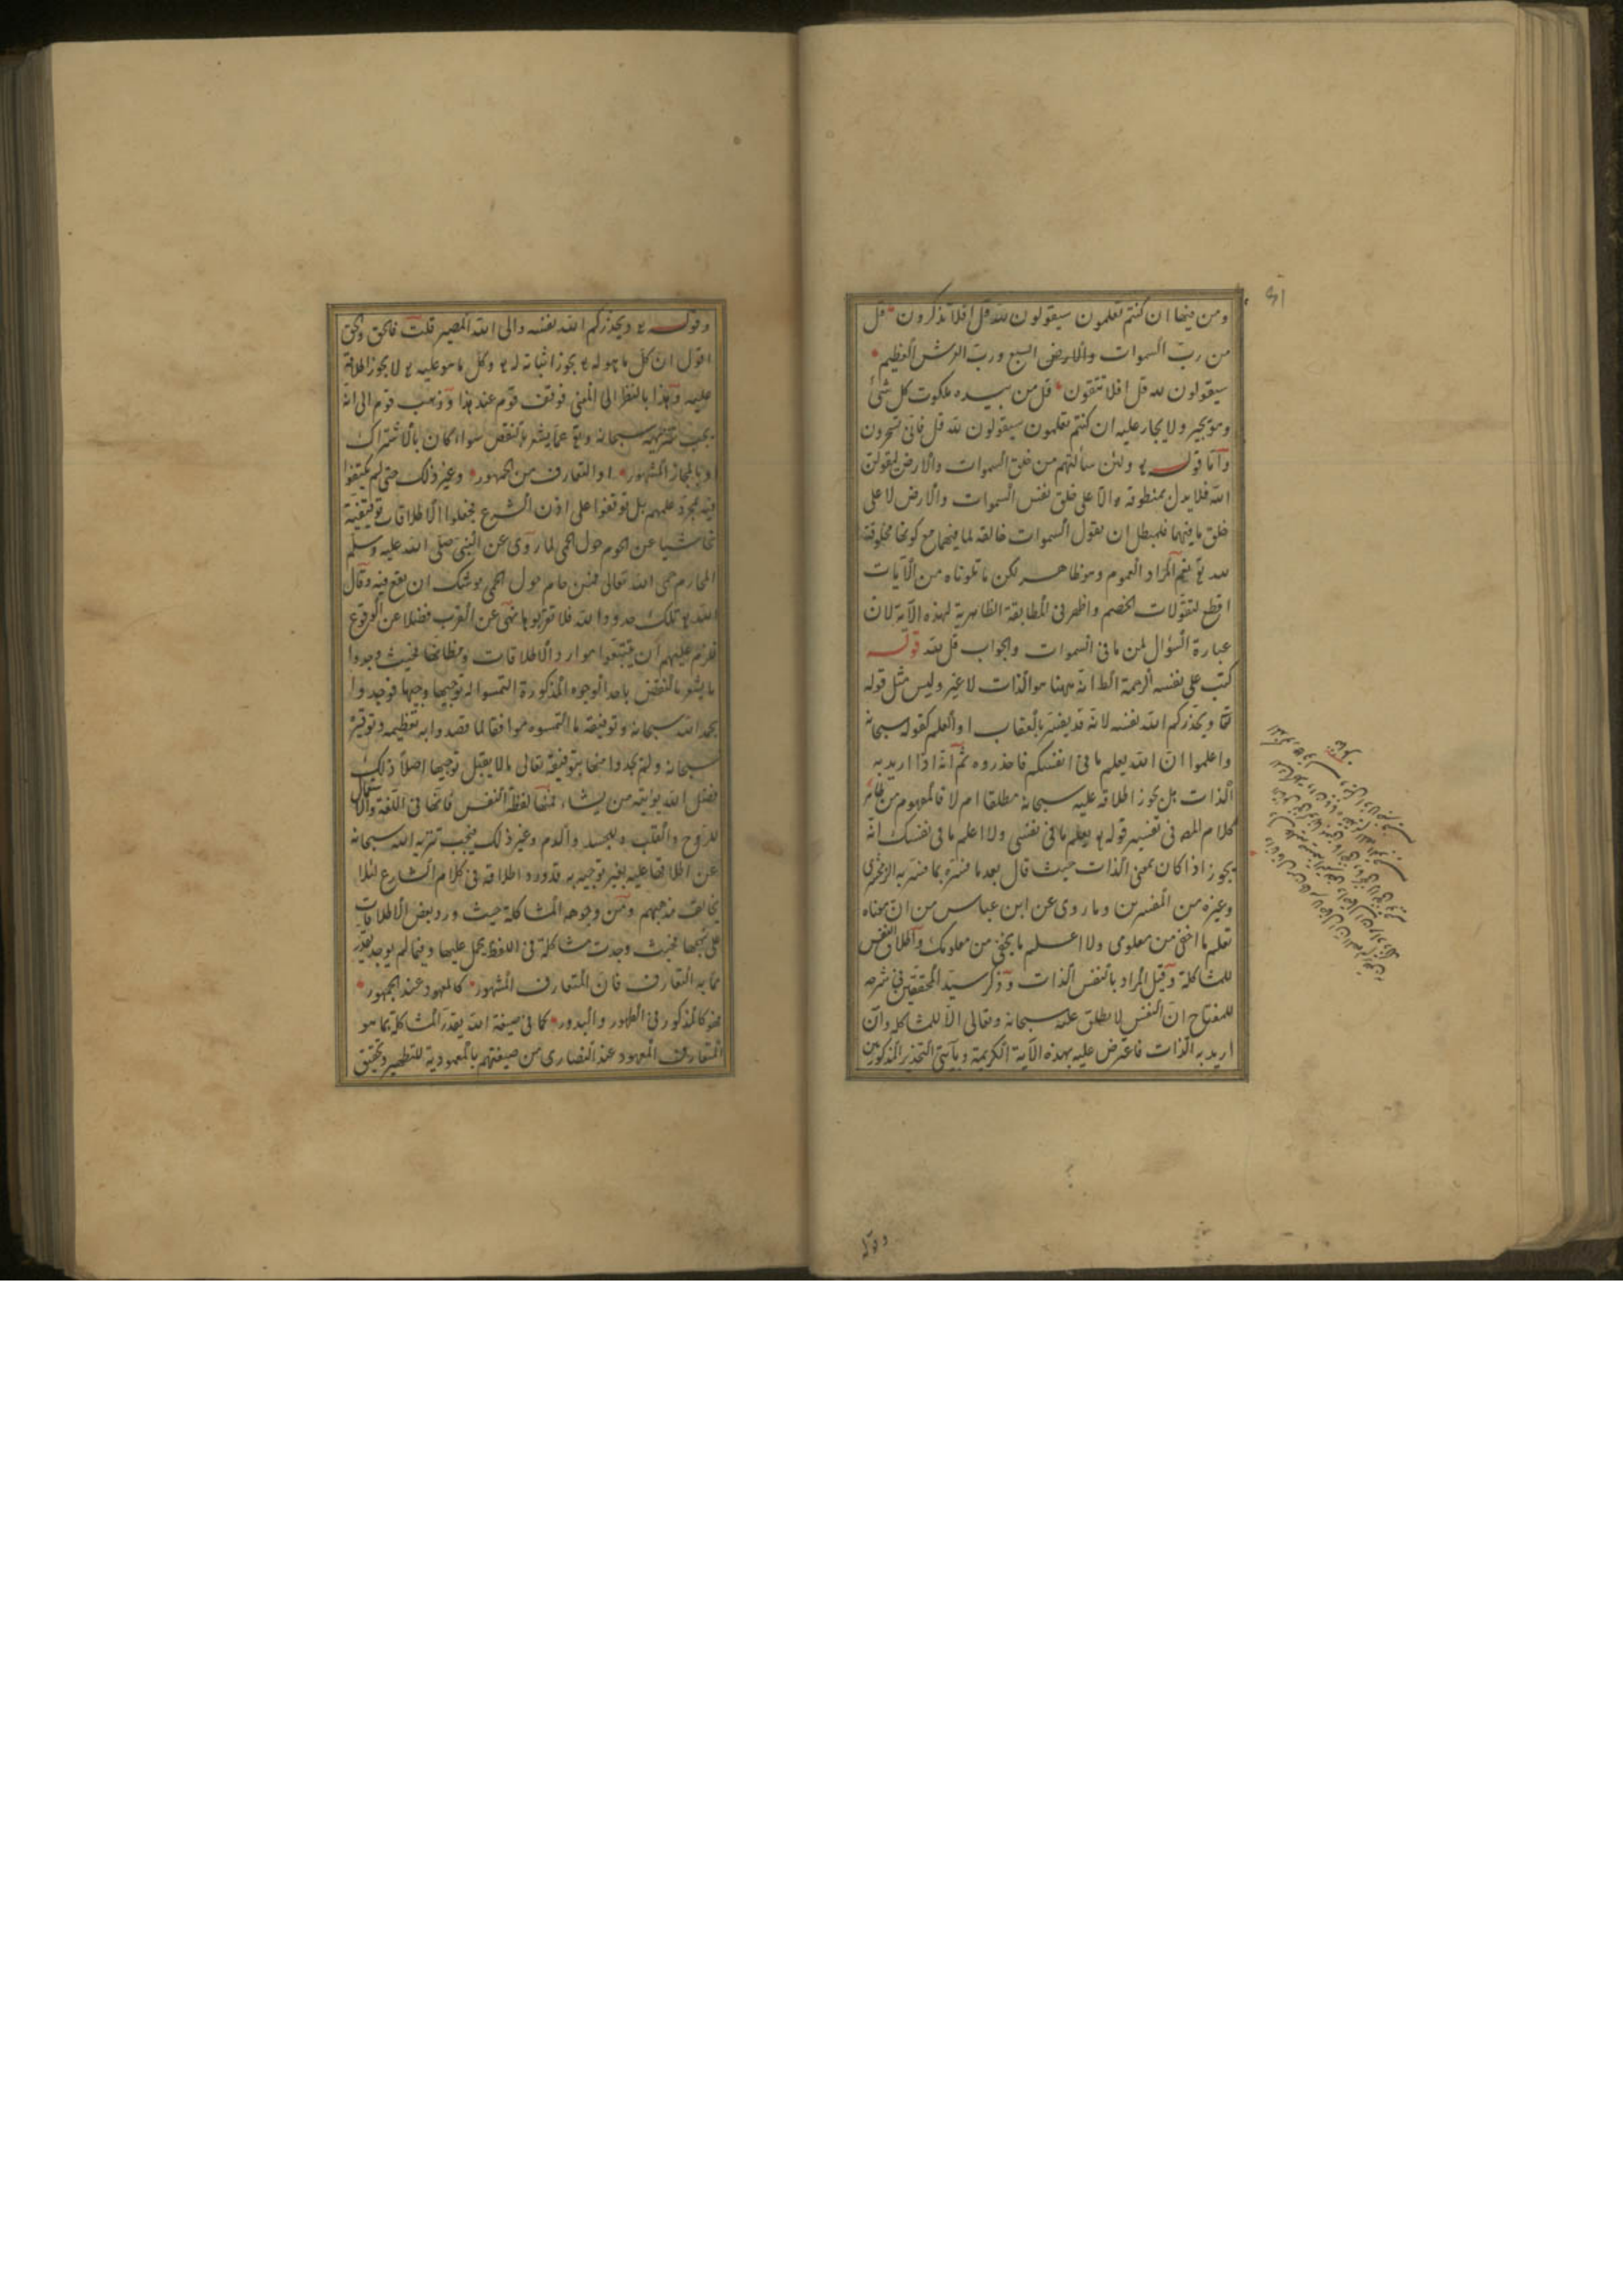 ومن فيها ان كنتم تعلمون سيقولون لله قل افلا تذكرون قل
من رب السموات والارض السبع ورب العرش العظيم
سيقولون لله قل افلا تتقون قل من بيده ملكوت كل شئ
وهو يجير ولا يجار عليه ان كنتم تعلمون سيقولون لله قل فانى تسحرون
واما قوله تع ولئن سألتهم من خلق السموات والارض ليقولن
الله فلا يدل بمنطوقه الا على خلق نفس السموات والارض لا على
خلق ما فيهما فلمبطل ان يقول السموات خالقة لما فيهما مع كونها مخلوقة
لله تع نعم المراد العموم وهو ظاهر لكن ما تلوناه من الآيات
اقطع لتقولات الخصم واظهر فى المطابقة الظاهرية لهذه الآية لان
عبارة السؤال لمن ما فى السموات والجواب قل لله قوله
كتب على نفسه الرحمة الظ انه ههنا هو الذات لا غير وليس مثل قوله
تعا ويحذركم الله نفسه لانه قد يفسر بالعقاب او العلم كقوله سبحانه
واعلموا ان الله يعلم ما فى انفسكم فاحذروه ثم انه اذا اريد به
الذات هل يجوز اطلاقه عليه سبحانه مطلقا ام لا فالمفهوم من ظاهر
كلام المص فى تفسير قوله تع تعلم ما فى نفسى ولا اعلم ما فى نفسك انه
يجوز اذا كان بمعنى الذات حيث قال بعد ما فسره بما فسر به الزمخشرى
وغيره من المفسرين وما روى عن ابن عباس من ان معناه
تعلم ما اخفى من معلومى ولا اعلم ما يخفى من معلومك واطلاق النفس
للمشاكلة وقيل المراد بالنفس الذات وذكر سيد المحققين فى شرحه
للمفتاح ان النفس لا يطلق عليه سبحانه وتعالى الا للمشاكلة وان
اريد به الذات فاعترض عليه بهذه الآية الكريمة وبآيتى التحذير المذكورتين
وقوله
وقوله تع ويحذركم الله نفسه والى الله المصير قلت فالحق والحق
اقول ان كل ما هو له تع يجوز اثباته له تع وكل ما هو عليه تع لا يجوز اطلاقه
عليه وهذا بالنظر الى المعنى فوقف قوم عند هذا وذهب قوم الى انه
يجب تنزيهه سبحانه وتع عما يشعر بالنقص سواء كان بالاشتراك
او بالمجاز المشهور او التعارف من الجمهور وغير ذلك حتى لم يكتفوا
فيه بمجرد علمهم بل توقفوا على اذن الشرع فجعلوا الاطلاقات توقيفية
تحاشيا عن الحوم حول الحمى لما روى عن النبى صلى الله عليه وسلم
المحارم حمى الله تعالى فمن حام حول الحمى يوشك ان يقع فيه وقال
الله تع تلك حدود الله فلا تقربوها نهى عن القرب فضلا عن الوقوع
فلزم عليهم ان يتتبعوا موارد الاطلاقات ومظانها فحيث وجدوا
ما يشعر بالنقص باحد الوجوه المذكورة التمسوا له توجيها وجيها فوجدوا
بحمد الله سبحانه وتوفيقه ما التمسوه موافقا لما قصدوا به تعظيمه وتوقيره
سبحانه ولم يجدوا منها بتوفيقه تعالى ما لا يقبل توجيها اصلا ذلك
فضل الله يؤتيه من يشاء فمنها لفظ النفس فانها فى اللغة والاستعمال
للروح والقلب وللجسد والدم وغير ذلك فيجب تنزيه الله سبحانه
عن اطلاقها عليه بغير توجيه به قد ورد اطلاقه فى كلام الشارع لئلا
يخالف مذهبهم ومن وجوهه المشاكلة حيث ورد بعض الاطلاقات
على نهجها فحيث وجدت مشاكلة فى اللفظ يحمل عليها وفيما لم يوجد يقدر
ما به التعارف فان المتعارف المشهور كالمعهود عند الجمهور
فهو كالمذكور فى الظهور والبدور كما فى صبغة الله يقدر المشاكلة بما هو
المتعارف المعهود عند النصارى من صبغتهم بالمعمودية للتطهير وتحقيق